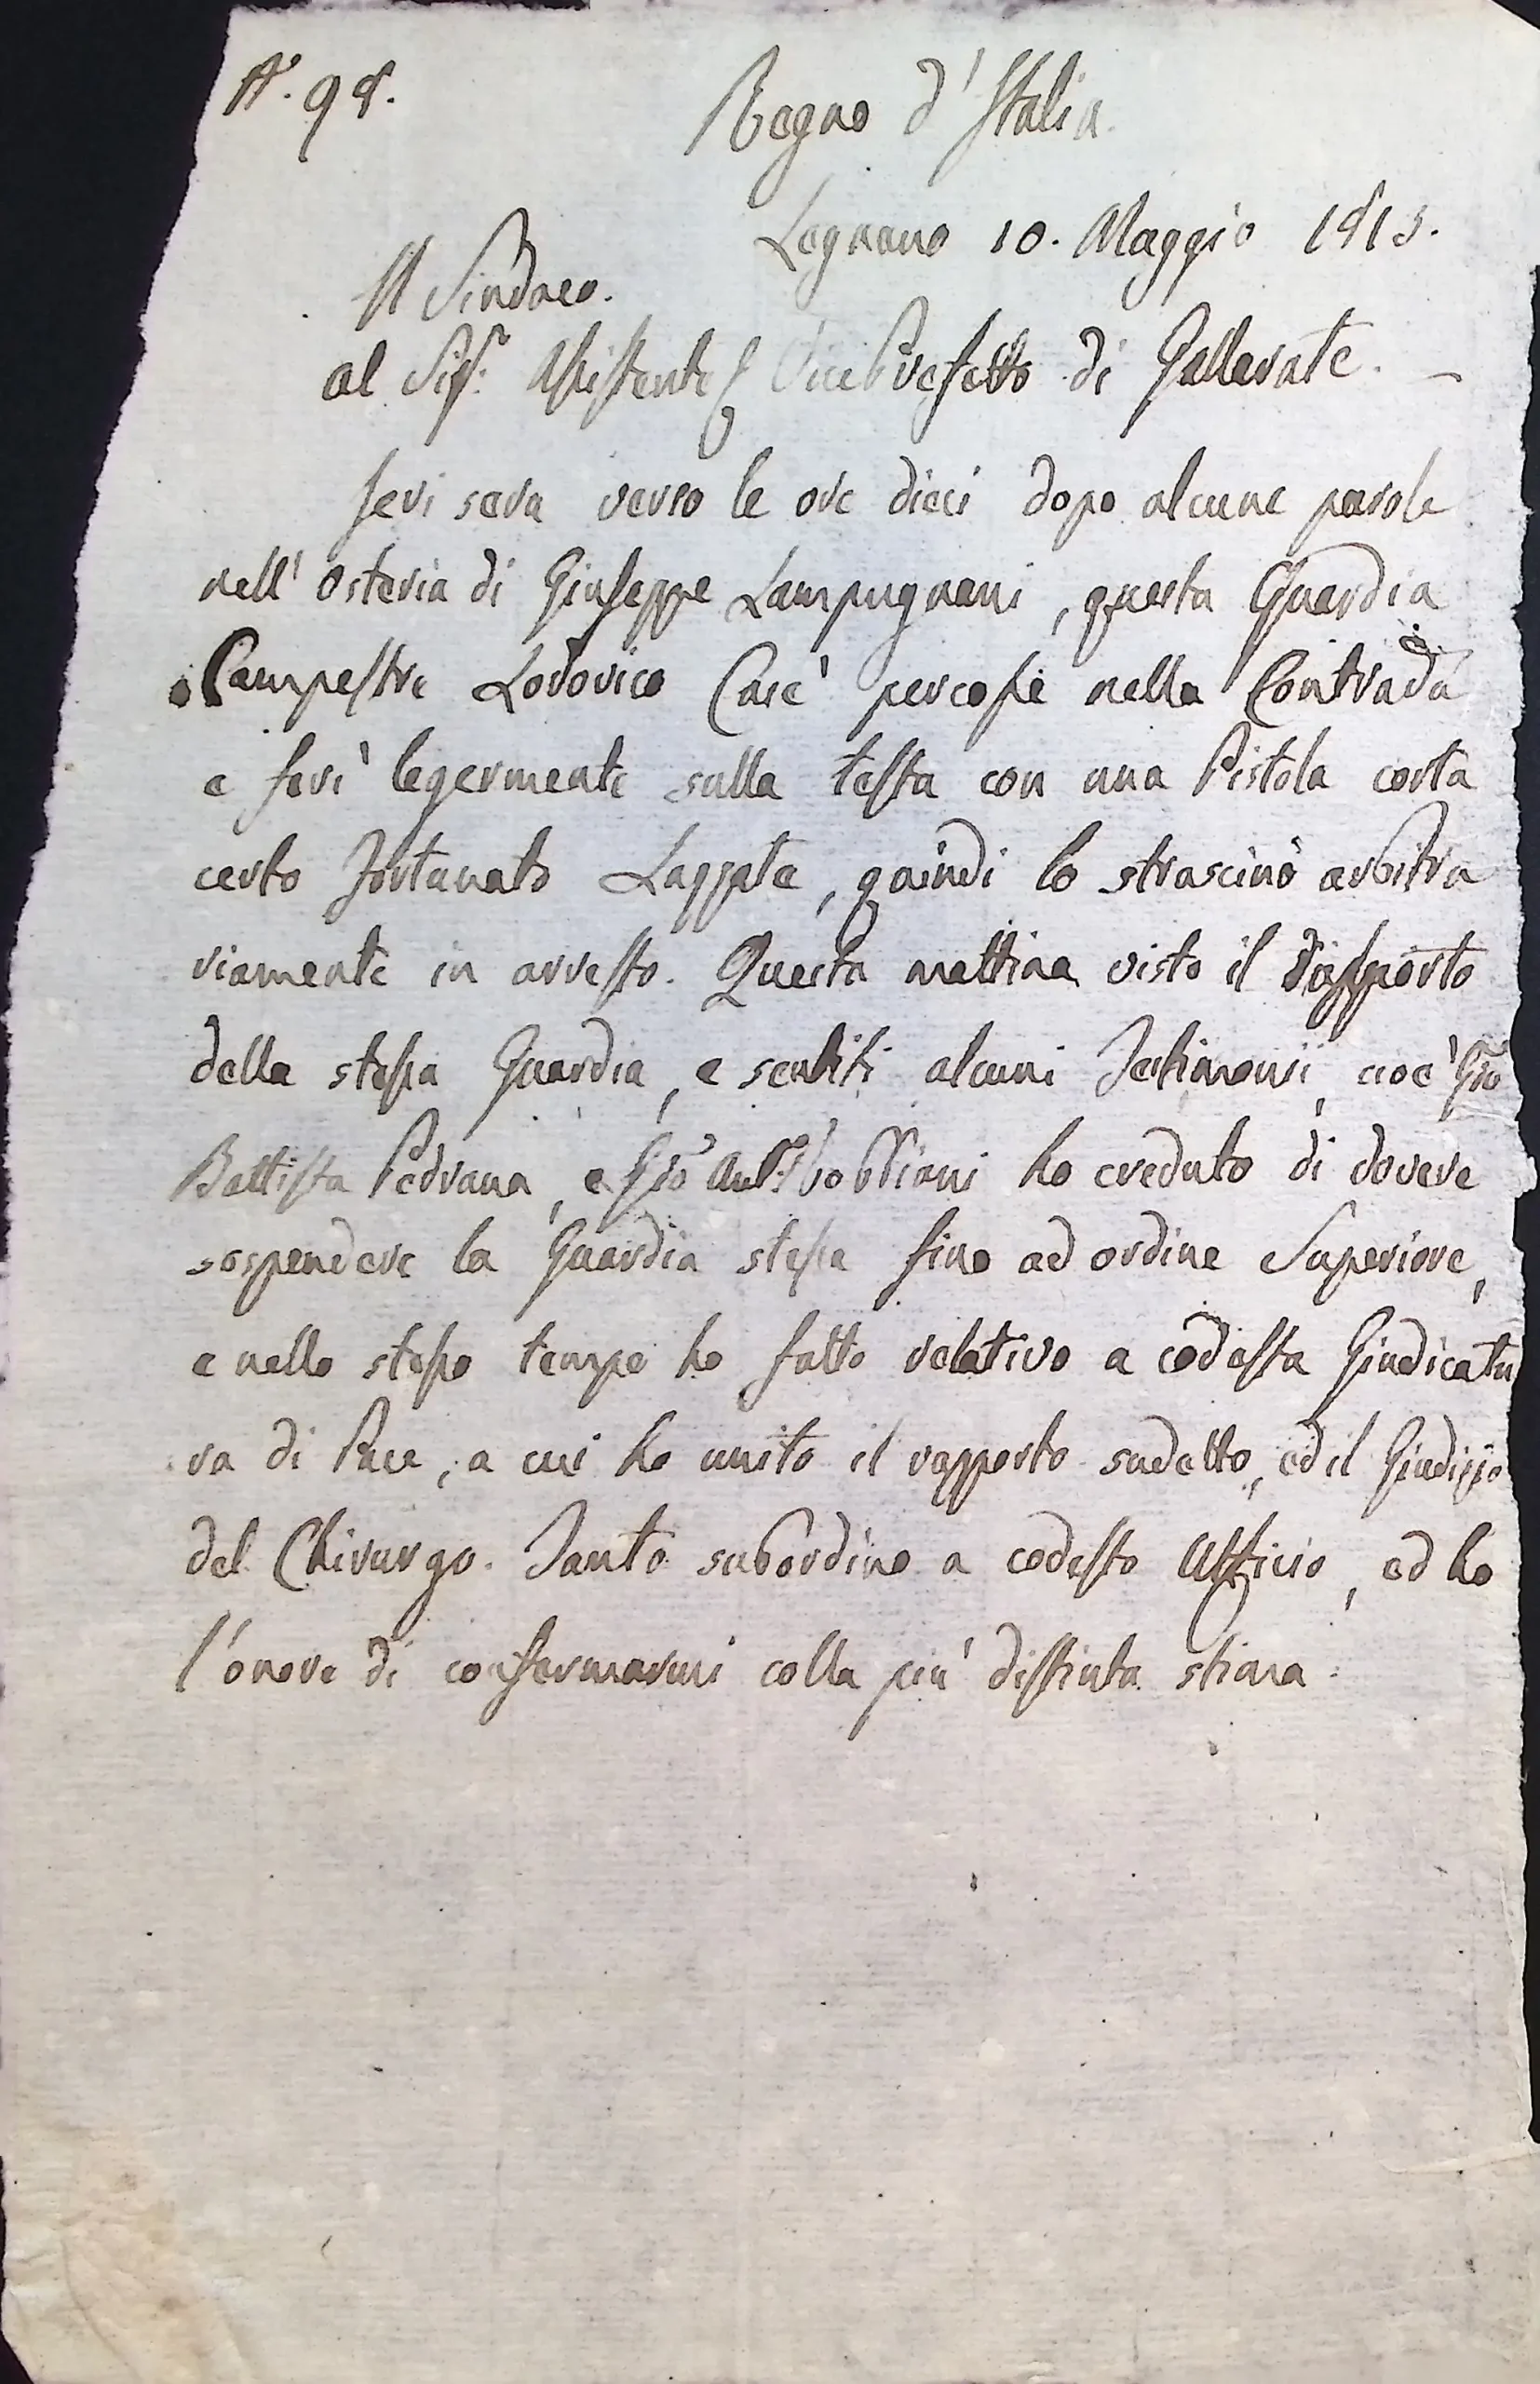 N.° 98.
Regno d'Italia.
Legnano 10. Maggio 1813.
Il Sindaco.
al Sig.r Assistente Vice Prefetto di Gallarate.
Jeri sera verso le ore dieci dopo alcune parole
nell' Osteria di Giuseppe Lampugnani, questa Guardia
Campestre Lodovico Casè percosse nella Contrada
e ferì legermente sulla testa con una Pistola corta
certo Fortunato Lazzate, quindi lo strascinò arbitra
riamente in arresto. Questa mattina visto il rapporto
della stessa Guardia, e sentiti alcuni Testimonii, cioè Gio
Battista Pedrana, e Gio Ant. ho creduto di dovere
sospendere la Guardia stessa fino ad ordine Superiore,
e nello stesso tempo ho fatto relativo a codesta Giudicatu
ra di Pace, a cui ho unito il rapporto sudetto, ed il Giudizio
del Chirurgo. Tanto subordino a codesto Ufficio, ed ho
l'onore di confermarmi colla più distinta stima.